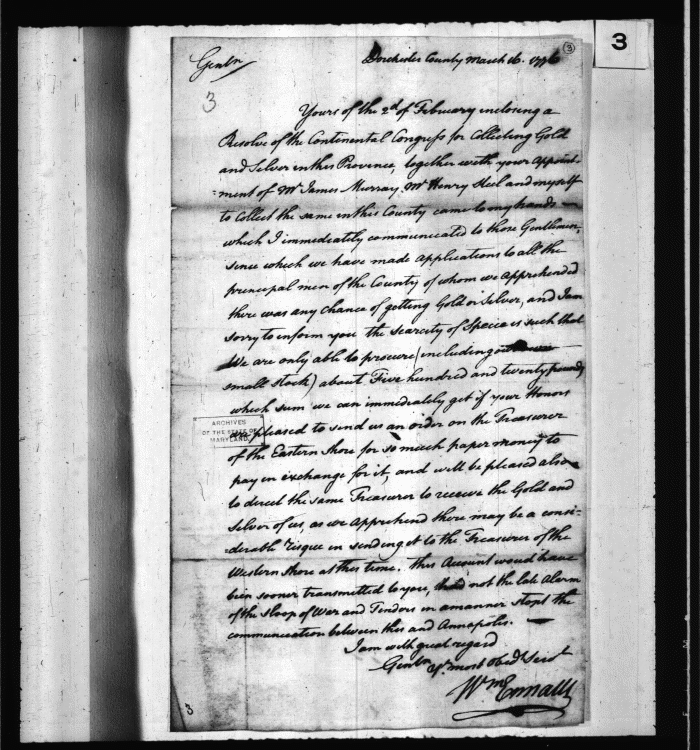 3
3
Gentn
Dorchester County March 16. 1776
3
Yours of the 2d of February inclosing a
Resolve of the Continental Congress for Collecting Gold
and Silver in this Province, together with your appoint-
:ment of Mr James Murray, Mr Henry Steel and myself
to Collect the same in this County came to my hands
which I immediately communicated to those Gentlemen,
since which we have made applications to all the
principal men of the County of whom we apprehended
there was any chance of getting Gold or Silver, and I am
sorry to inform you the scarcity of Specie is such that
We are only able to procure (including our own
small stock) about Five hundred and twenty pounds,
which sum we can immediately get if your Honors
ARCHIVES
OF THE STATE OF
MARYLAND
are pleased to send us an order on the Treasurer
of the Eastern Shore for so much paper money to
pay in exchange for it, and will be pleased also
to direct the same Treasurer to receive the Gold and
Silver of us, as we apprehend there may be a consi-
:derable risque in sending it to the Treasurer of the
Western Shore at this time. This Account would have
been sooner transmitted to you, had not the late Alarm
of the Sloop of War and Tenders in a manner stopt the
communication between this and Annapolis.
I am with great regard
Gentn yr. most Obedt Servt
Wm Ennalls
3